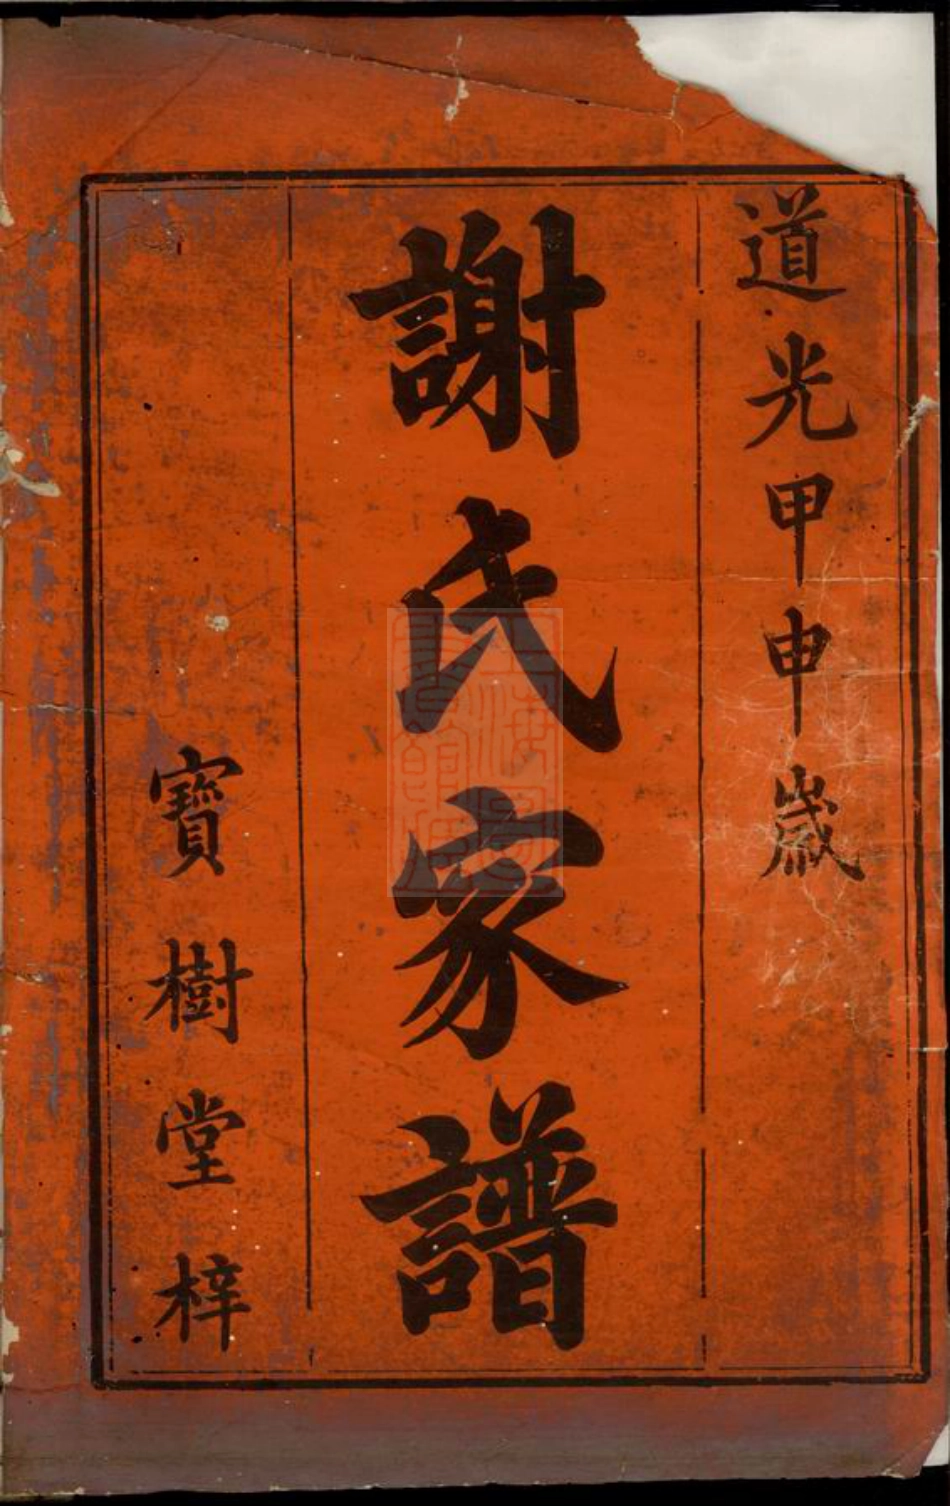 道光甲申歲
謝氏家譜
寶樹堂梓